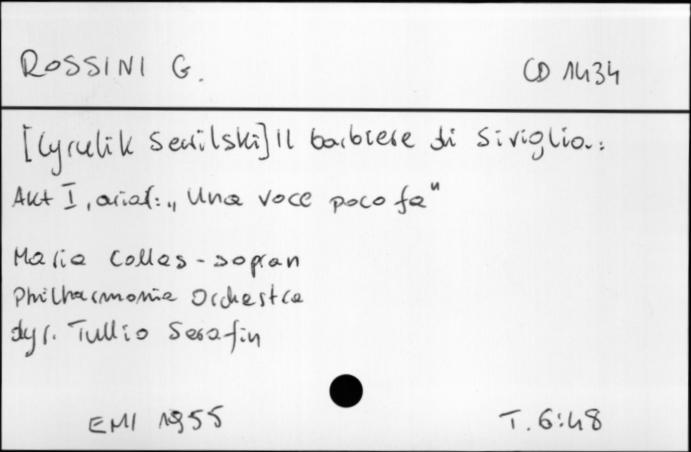 ROSSINI G. CD 1434
[Cyrulik Sewilski] Il barbiere di Siviglia:
Akt I, aria: „Una voce poco fa"
Maria Callas - sopran
Philharmonia Orchestra
dyr. Tullio Serafin
EMI 1955 T. 6:48